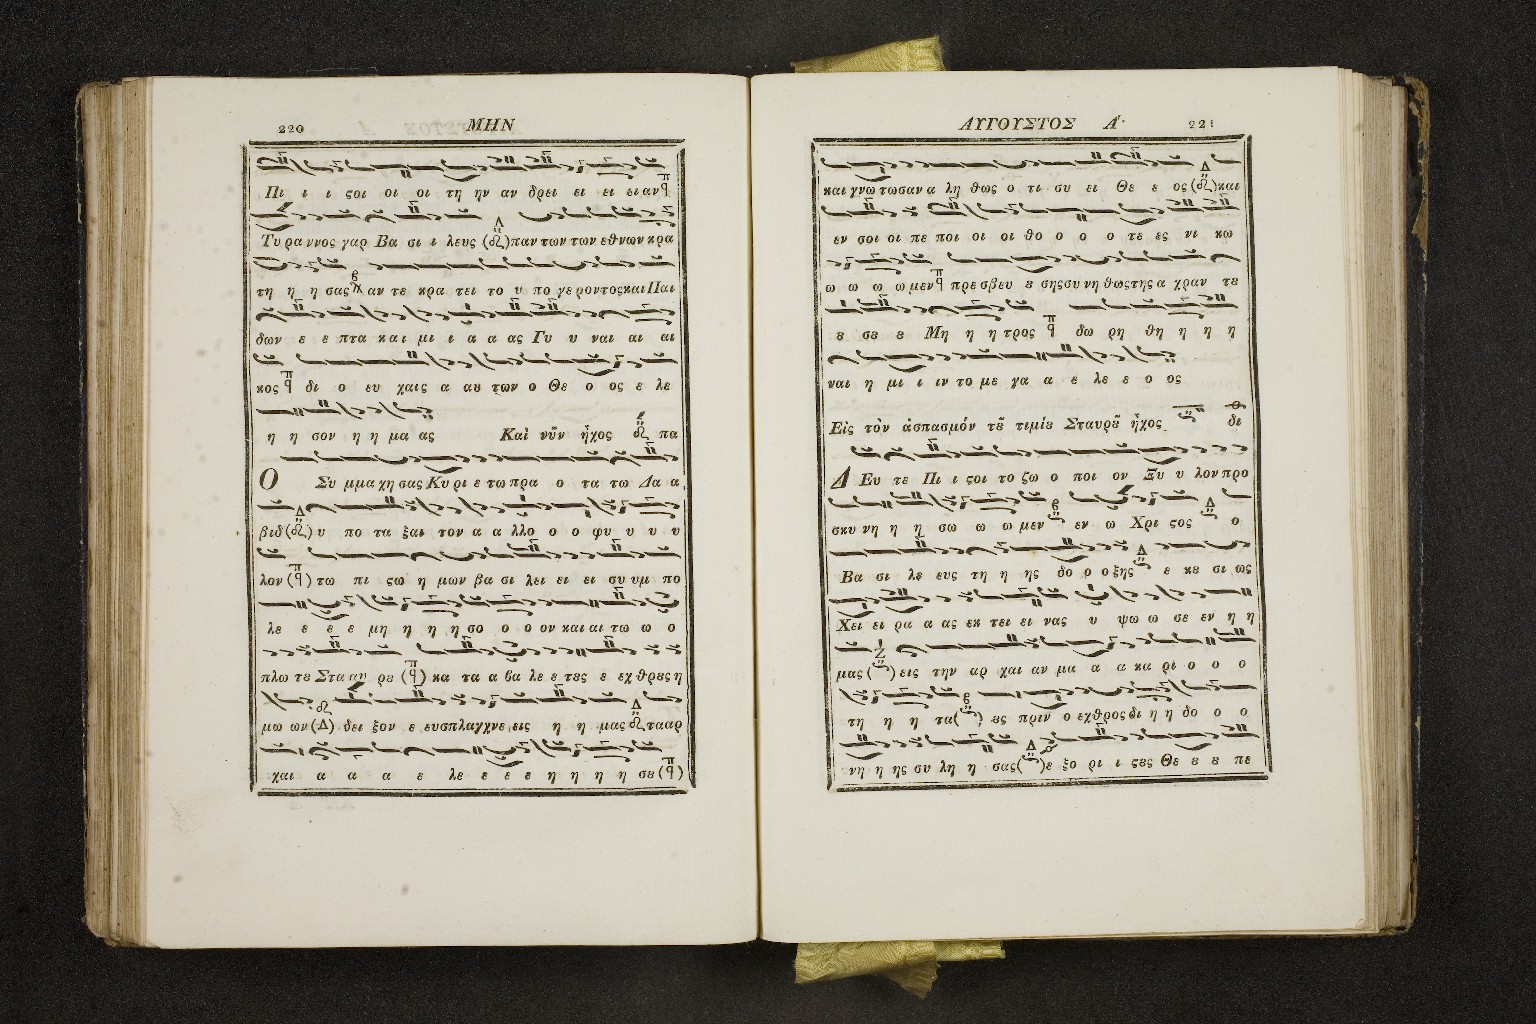 220 ΜΗΝ
Πι ι ι ςοι οι οι τη ην αν δρει ει ει ει αν
Τυ ρα ννος γαρ Βα σι ι λευς παν των των εθνων κρα
τη η η σας αν τε κρα τει το υ πο γε ροντος και Παι
δων ε ε πτα και μι ι α α ας Γυ υ ναι αι αι
κος δι ο ευ χαις α αυ των ο Θε ο ος ε λε
η η σον η η μα ας Καὶ νῦν ἦχος πα
Ο Συ μμα χη σας Κυ ρι ε τω πρα ο τα τω Δα α
βιδ υ πο τα ξαι τον α α λλο ο ο φυ υ υ υ
λον τω πι ςω η μων βα σι λει ει ει συ υμ πο
λε ε ε ε μη η η η σο ο ο ον και αι τω ω ο
πλω τȣ Στα αυ ρȣ κα τα α βα λε ε τȣς ε εχ θρȣς η
μω ων (Δ) δει ξον ε ευσπλαγχνε εις η η μας τα αρ
χαι α α α ε λε ε ε ε η η η η σȣ
ΑΥΓΟΥΣΤΟΣ Α΄. 221
και γνω τωσαν α λη θως ο τι συ ει Θε ε ος και
εν σοι οι πε ποι οι οι θο ο ο ο τε ες νι κω
ω ω ω ω μεν πρε σβευ ȣ σης συ νη θως της α χραν τȣ
ȣ σȣ ȣ Μη η η τρος δω ρη θη η η η
ναι η μι ι ιν το με γα α ε λε ε ο ος
Εἰς τὸν ἀσπασμόν τȣ͂ τιμίȣ Σταυρȣ͂ ἦχος δι
Δ Ευ τε Πι ι ςοι το ζω ο ποι ον Ξυ υ λον προ
σκυ νη η η σω ω ω μεν εν ω Χρι ςος ο
Βα σι λε ευς τη η ης δο ο ο ξης ε κȣ σι ως
Χει ει ρα α ας εκ τει ει νας υ ψω ω σε εν η η
μας εις την αρ χαι αν μα α α κα ρι ο ο ο
τη η η τα ȣς πριν ο εχθρος δι η η δο ο ο
νη η ης συ λη η σας ε ξο ρι ι ςȣς Θε ȣ ȣ πε